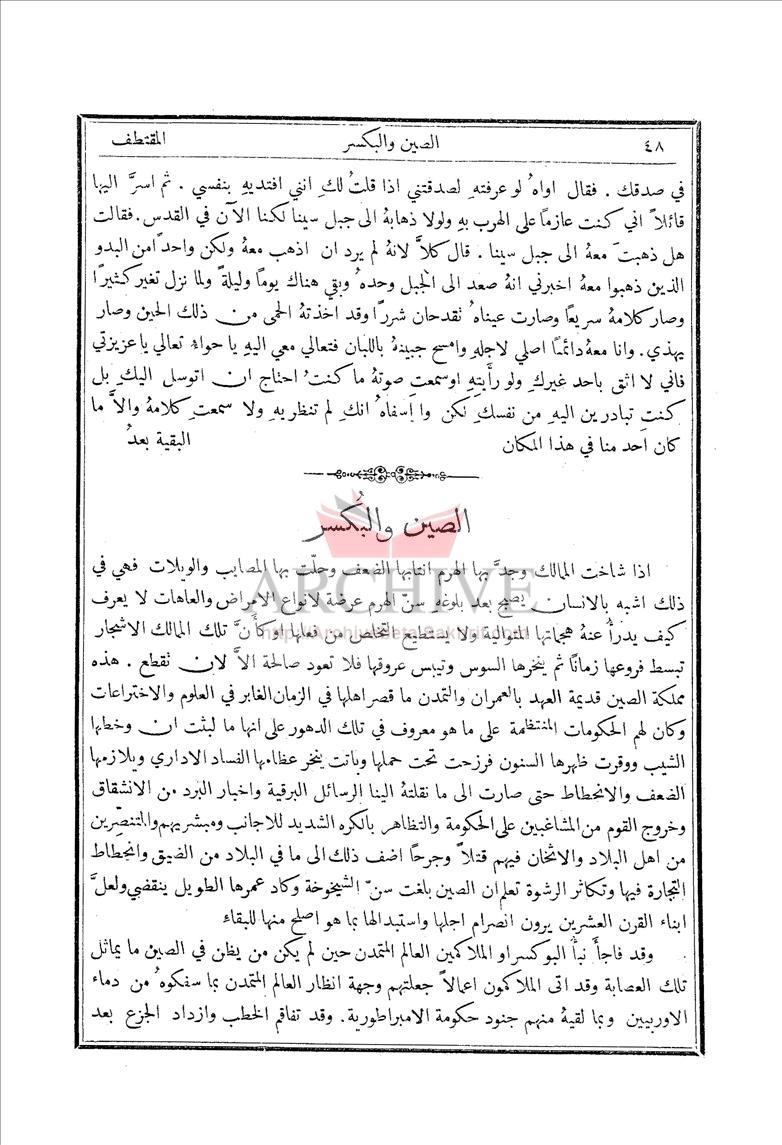 ٤٨ الصين والبكسر المقتطف
في صدقك . فقال اواهُ لو عرفتهِ لصدقتني اذا قلتُ لكِ انني افتديهِ بنفسي . ثم اسرَّ اليها
قائلاً اني كنت عازماً على الهرب بهِ ولولا ذهابهُ الى جبل سينا لكنا الآن في القدس . فقالت
هل ذهبتَ معهُ الى جبل سينا . قال كلاَّ لانهُ لم يرد ان اذهب معهُ ولكن واحداً من البدو
الذين ذهبوا معهُ اخبرني انهُ صعد الى الجبل وحدهُ وبقي هناك يوماً وليلةً ولما نزل تغير كثيراً
وصار كلامهُ سريعاً وصارت عيناهُ تقدحان شرراً وقد اخذتهُ الحمى من ذلك الحين وصار
يهذي . وانا معهُ دائماً اصلي لاجلهِ وامسح جبينهُ باللبان فتعالي معي اليهِ يا حواءُ تعالي يا عزيزتي
فاني لا اثق باحد غيركِ ولو رأيتِهِ او سمعتِ صوتهُ ما كنتُ احتاج ان اتوسل اليكِ بل
كنتِ تبادرين اليهِ من نفسكِ لكن وا اسفاهُ انكِ لم تنظريهِ ولا سمعتِ كلامهُ والاَّ ما
كان احد منا في هذا المكان البقية بعدُ
الصين والبُكسر
اذا شاخت الممالك وجدَّ بها الهرم انتابها الضعف وحلَّت بها المصايب والويلات فهي في
ذلك اشبه بالانسان يصبح بعد بلوغهِ سنَّ الهرم عرضة لانواع الامراض والعاهات لا يعرف
كيف يدرأُ عنهُ هجماتها المتوالية ولا يستطيع التخلص من فعلها او كأَنَّ تلك الممالك الاشجار
تبسط فروعها زماناً ثم ينخرها السوس وتيبس عروقها فلا تعود صالحة الاَّ لان تقطع . هذه
مملكة الصين قديمة العهد بالعمران والتمدن ما قصر اهلها في الزمان الغابر في العلوم والاختراعات
وكان لهم الحكومات المنتظمة على ما هو معروف في تلك الدهور على انها ما لبثت ان وخطها
الشيب ووقرت ظهرها السنون فرزحت تحت حملها وباتت ينخر عظامها الفساد الاداري ويلازمها
الضعف والانحطاط حتى صارت الى ما نقلتهُ الينا الرسائل البرقية واخبار البرد من الانشقاق
وخروج القوم من المشاغبين على الحكومة والتظاهر بالكره الشديد للاجانب ومبشريهم والمتنصِّرين
من اهل البلاد والاثخان فيهم قتلاً وجرحاً اضف ذلك الى ما في البلاد من الضيق وانحطاط
التجارة فيها وتكاثر الرشوة تعلم ان الصين بلغت سنَّ الشيخوخة وكاد عمرها الطويل ينقضي ولعلَّ
ابناء القرن العشرين يرون انصرام اجلها واستبدالها بما هو اصلح منها للبقاء
وقد فاجأَ نبأُ البوكسر او الملاكمين العالم المتمدن حين لم يكن من يظن في الصين ما يماثل
تلك العصابة وقد اتى الملاكمون اعمالاً جعلتهم وجهة انظار العالم المتمدن بما سفكوهُ من دماء
الاوربيين وبما لقيهُ منهم جنود حكومة الامبراطورية . وقد تفاقم الخطب وازداد الجزع بعد
ARCHIVE